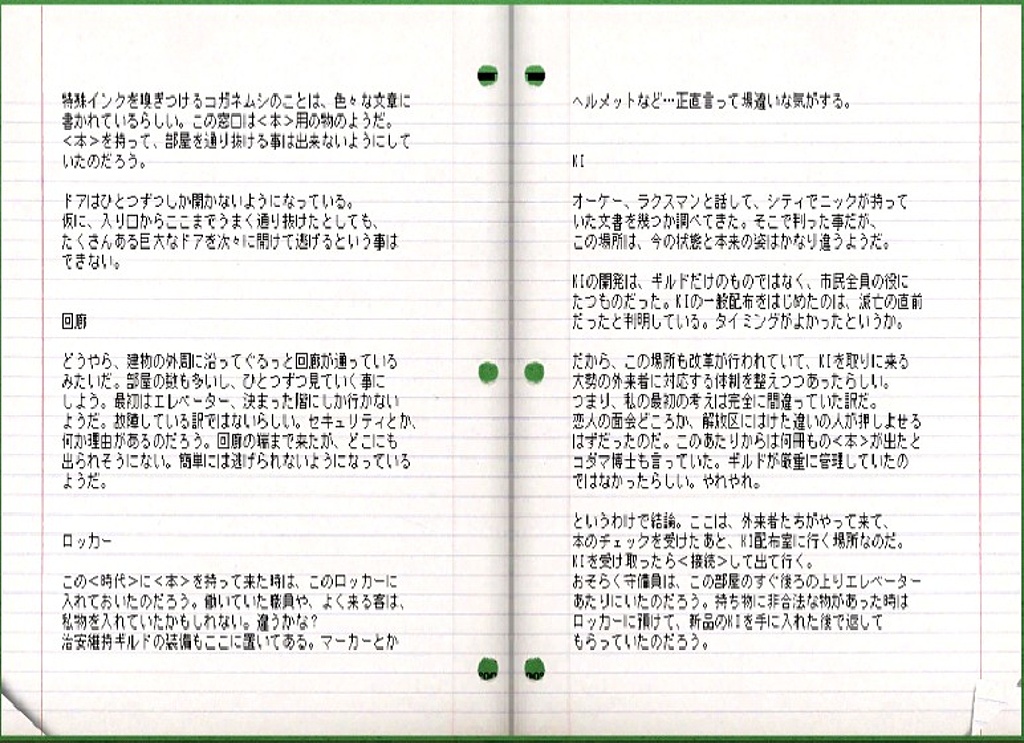 特殊インクを嗅ぎつけるコガネムシのことは、色々な文章に
書かれているらしい。この窓口は＜本＞用の物のようだ。
＜本＞を持って、部屋を通り抜ける事は出来ないようにして
いたのだろう。
ドアはひとつずつしか開かないようになっている。
仮に、入り口からここまでうまく通り抜けたとしても、
たくさんある巨大なドアを次々に開けて逃げるという事は
できない。
回廊
どうやら、建物の外周に沿ってぐるっと回廊が通っている
みたいだ。部屋の数も多いし、ひとつずつ見ていく事に
しよう。最初はエレベーター、決まった階にしか行かない
ようだ。故障している訳ではないらしい。セキュリティとか、
何か理由があるのだろう。回廊の端まで来たが、どこにも
出られそうにない。簡単には逃げられないようになっている
ようだ。
ロッカー
この＜時代＞に＜本＞を持って来た時は、このロッカーに
入れておいたのだろう。働いていた職員や、よく来る客は、
私物を入れていたかもしれない。違うかな？
治安維持ギルドの装備もここに置いてある。マーカーとか
ヘルメットなど…正直言って場違いな気がする。
KI
オーケー、ラクスマンと話して、シティでニックが持って
いた文書を幾つか調べてきた。そこで判った事だが、
この場所は、今の状態と本来の姿はかなり違うようだ。
KIの開発は、ギルドだけのものではなく、市民全員の役に
たつものだった。KIの一般配布をはじめたのは、滅亡の直前
だったと判明している。タイミングがよかったというか。
だから、この場所も改革が行われていて、KIを取りに来る
大勢の外来者に対応する体制を整えつつあったらしい。
つまり、私の最初の考えは完全に間違っていた訳だ。
恋人の面会どころか、解放区にはけた違いの人が押しよせる
はずだったのだ。このあたりからは何冊もの＜本＞が出たと
コダマ博士も言っていた。ギルドが厳重に管理していたの
ではなかったらしい。やれやれ。
というわけで結論。ここは、外来者たちがやって来て、
本のチェックを受けたあと、KI配布室に行く場所なのだ。
KIを受け取ったら＜接続＞して出て行く。
おそらく守備員は、この部屋のすぐ後ろの上りエレベーター
あたりにいたのだろう。持ち物に非合法な物があった時は
ロッカーに預けて、新品のKIを手に入れた後で返して
もらっていたのだろう。